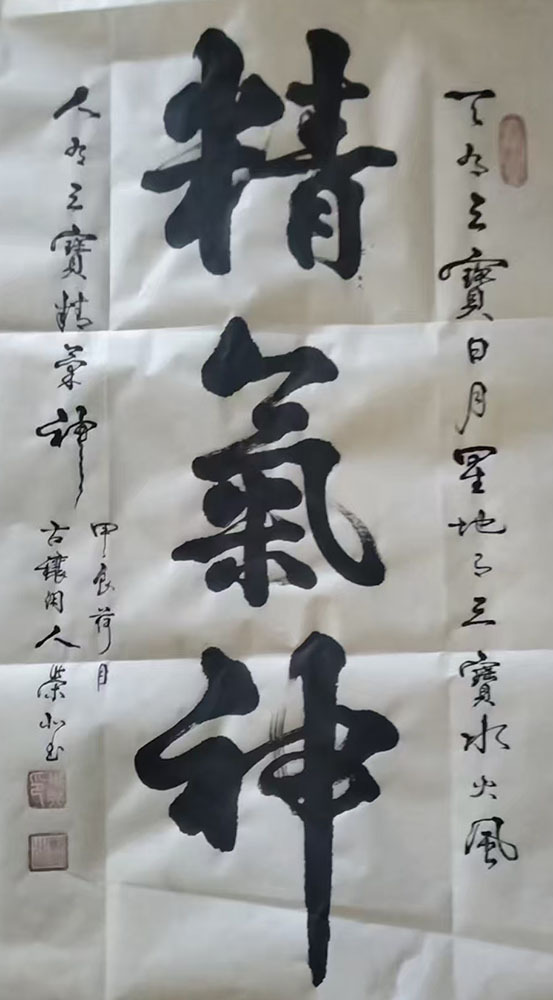 精氣神
天有三寶日月星地有三寶水火風
人有三寶精氣神
甲辰荷月
古穰閑人榮小玉